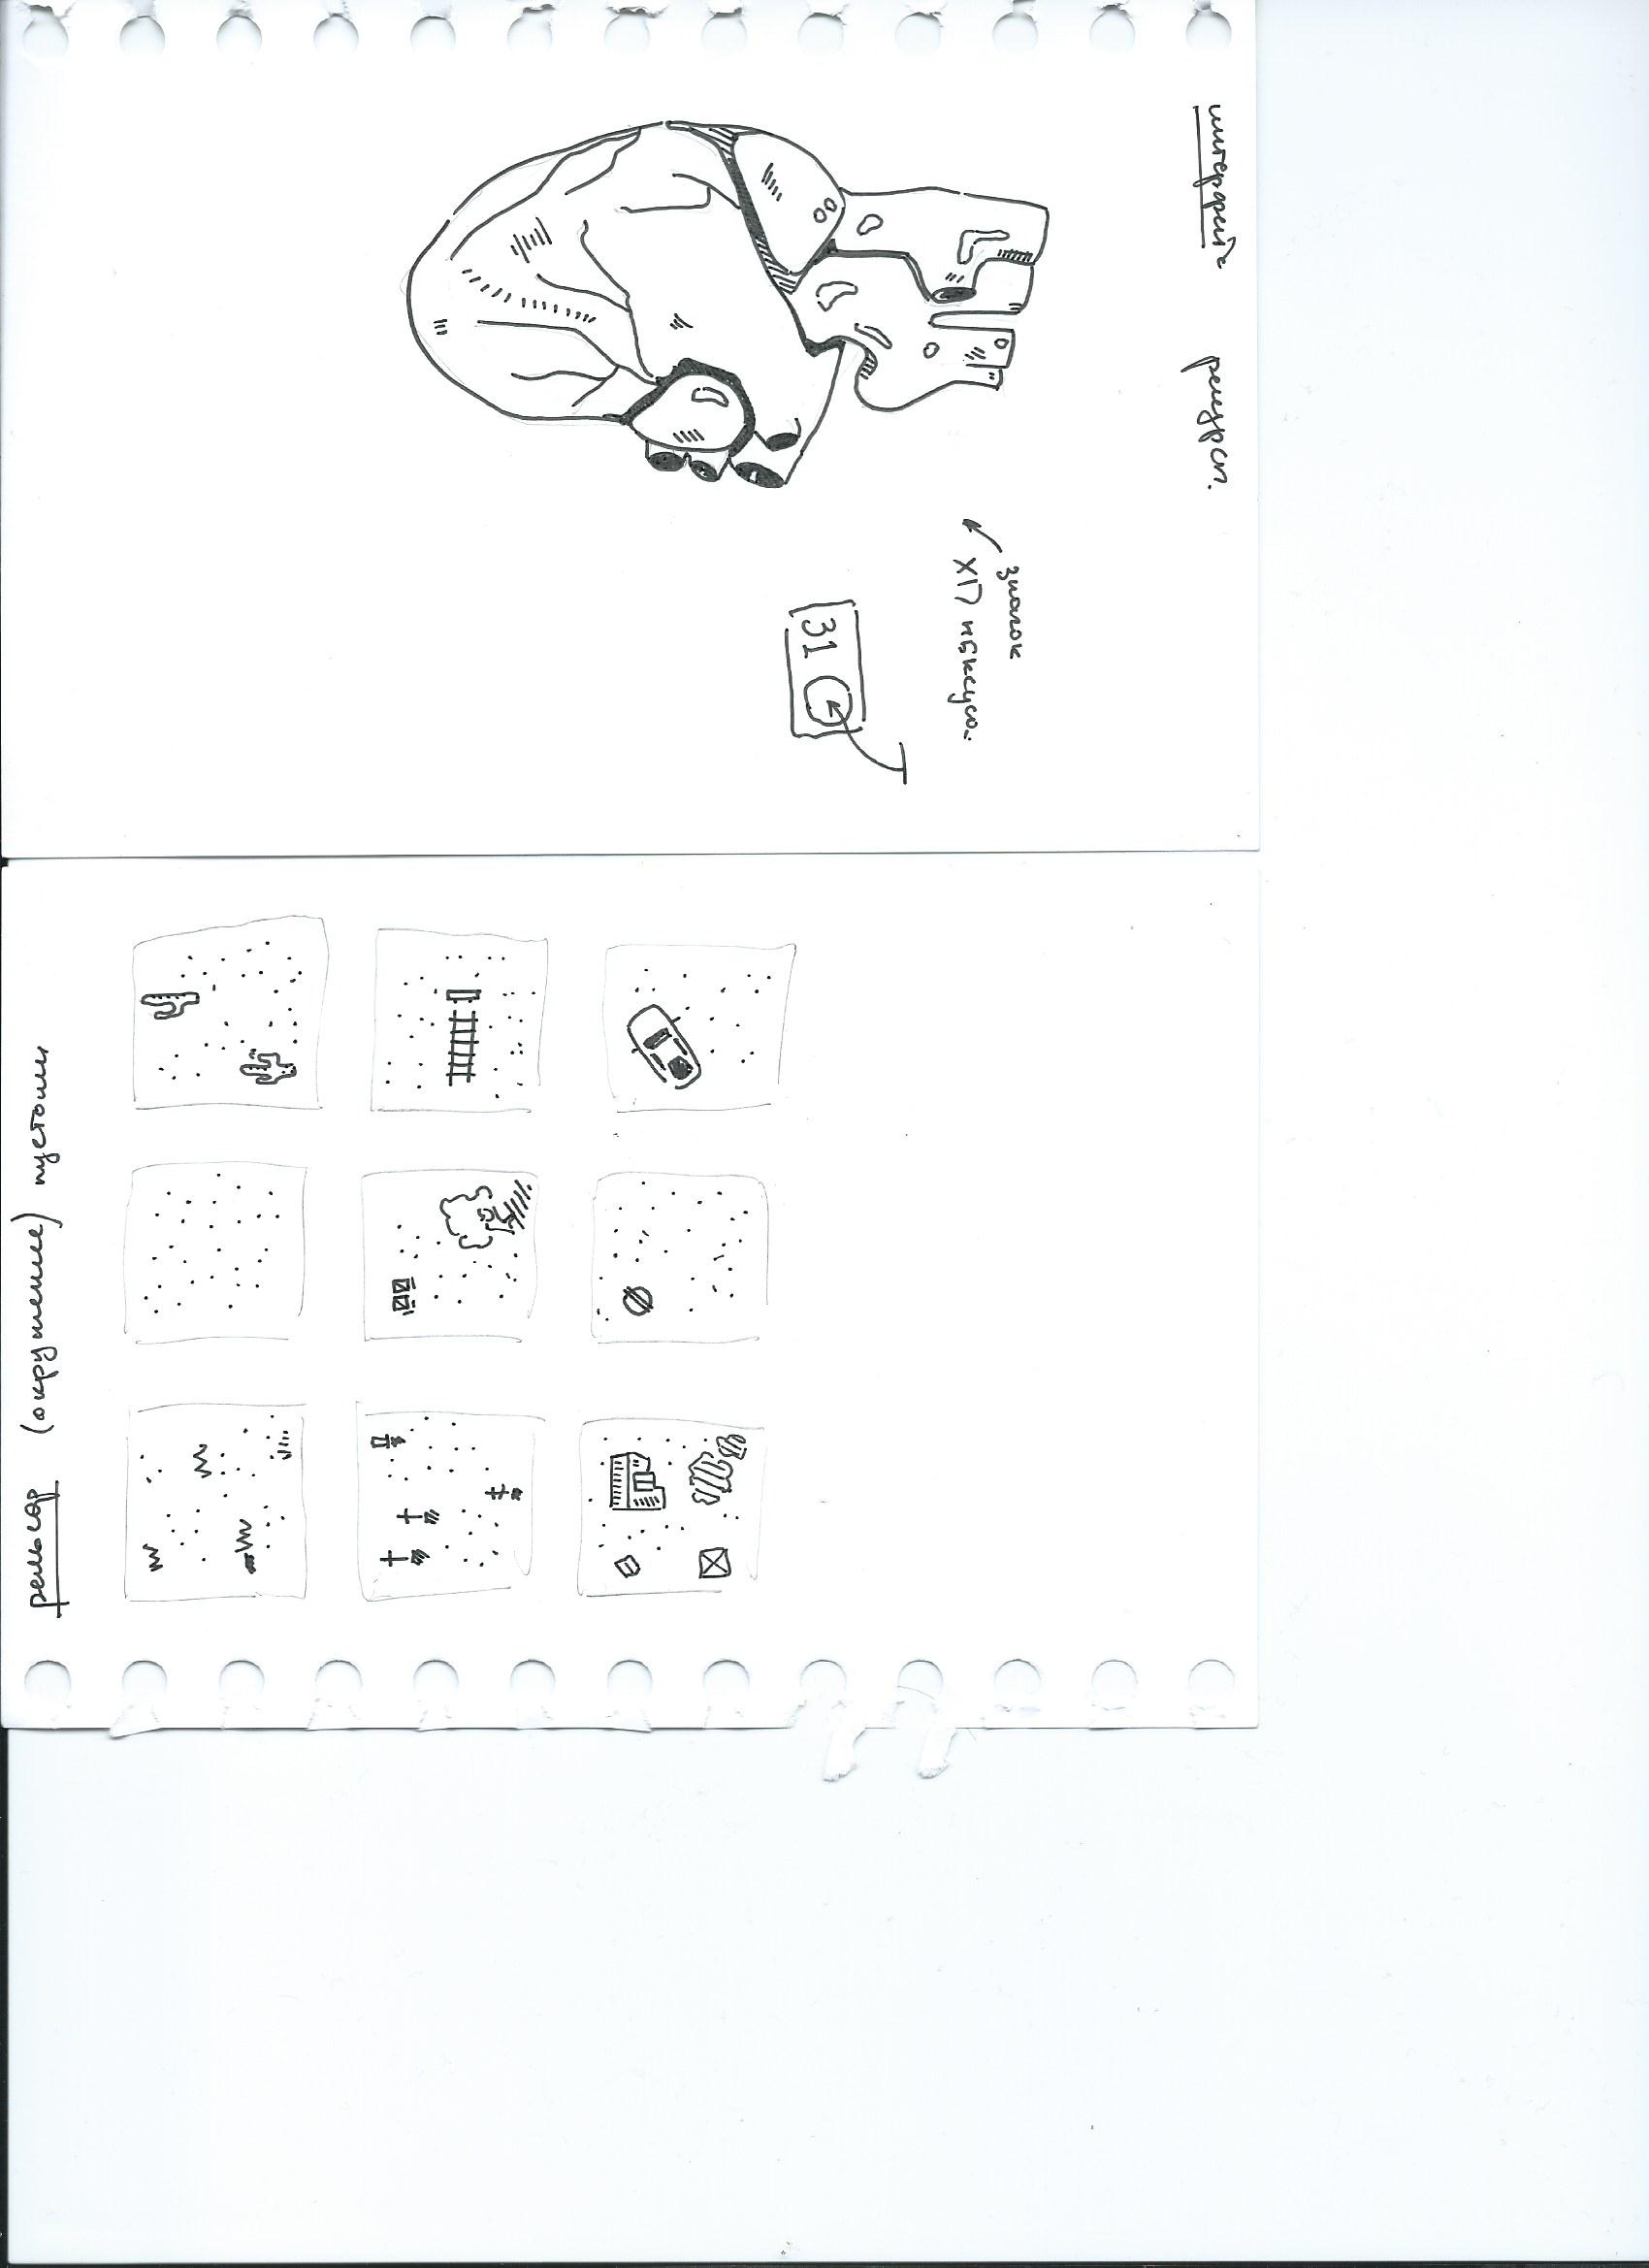 интерфейс ресурсы.
значок
ХП
31
рельеф (окружение) пустоши